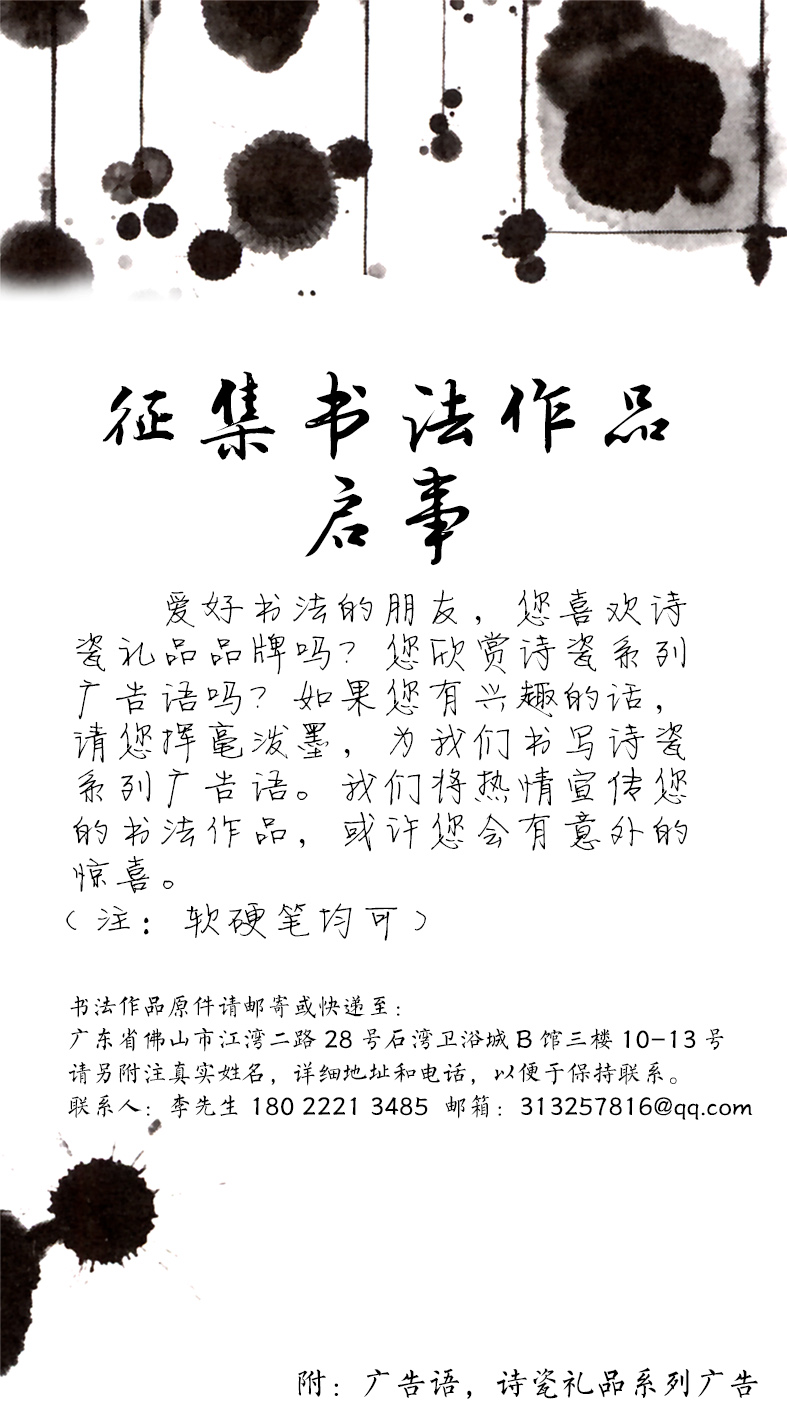 征集书法作品
启事
爱好书法的朋友，您喜欢诗
瓷礼品品牌吗？您欣赏诗瓷系列
广告语吗？如果您有兴趣的话，
请您挥毫泼墨，为我们书写诗瓷
系列广告语。我们将热情宣传您
的书法作品，或许您会有意外的
惊喜。
（注：软硬笔均可）
书法作品原件请邮寄或快递至：
广东省佛山市江湾二路28号石湾卫浴城B馆三楼10-13号
请另附注真实姓名，详细地址和电话，以便于保持联系。
联系人：李先生 180 2221 3485 邮箱：313257816@qq.com
附：广告语，诗瓷礼品系列广告